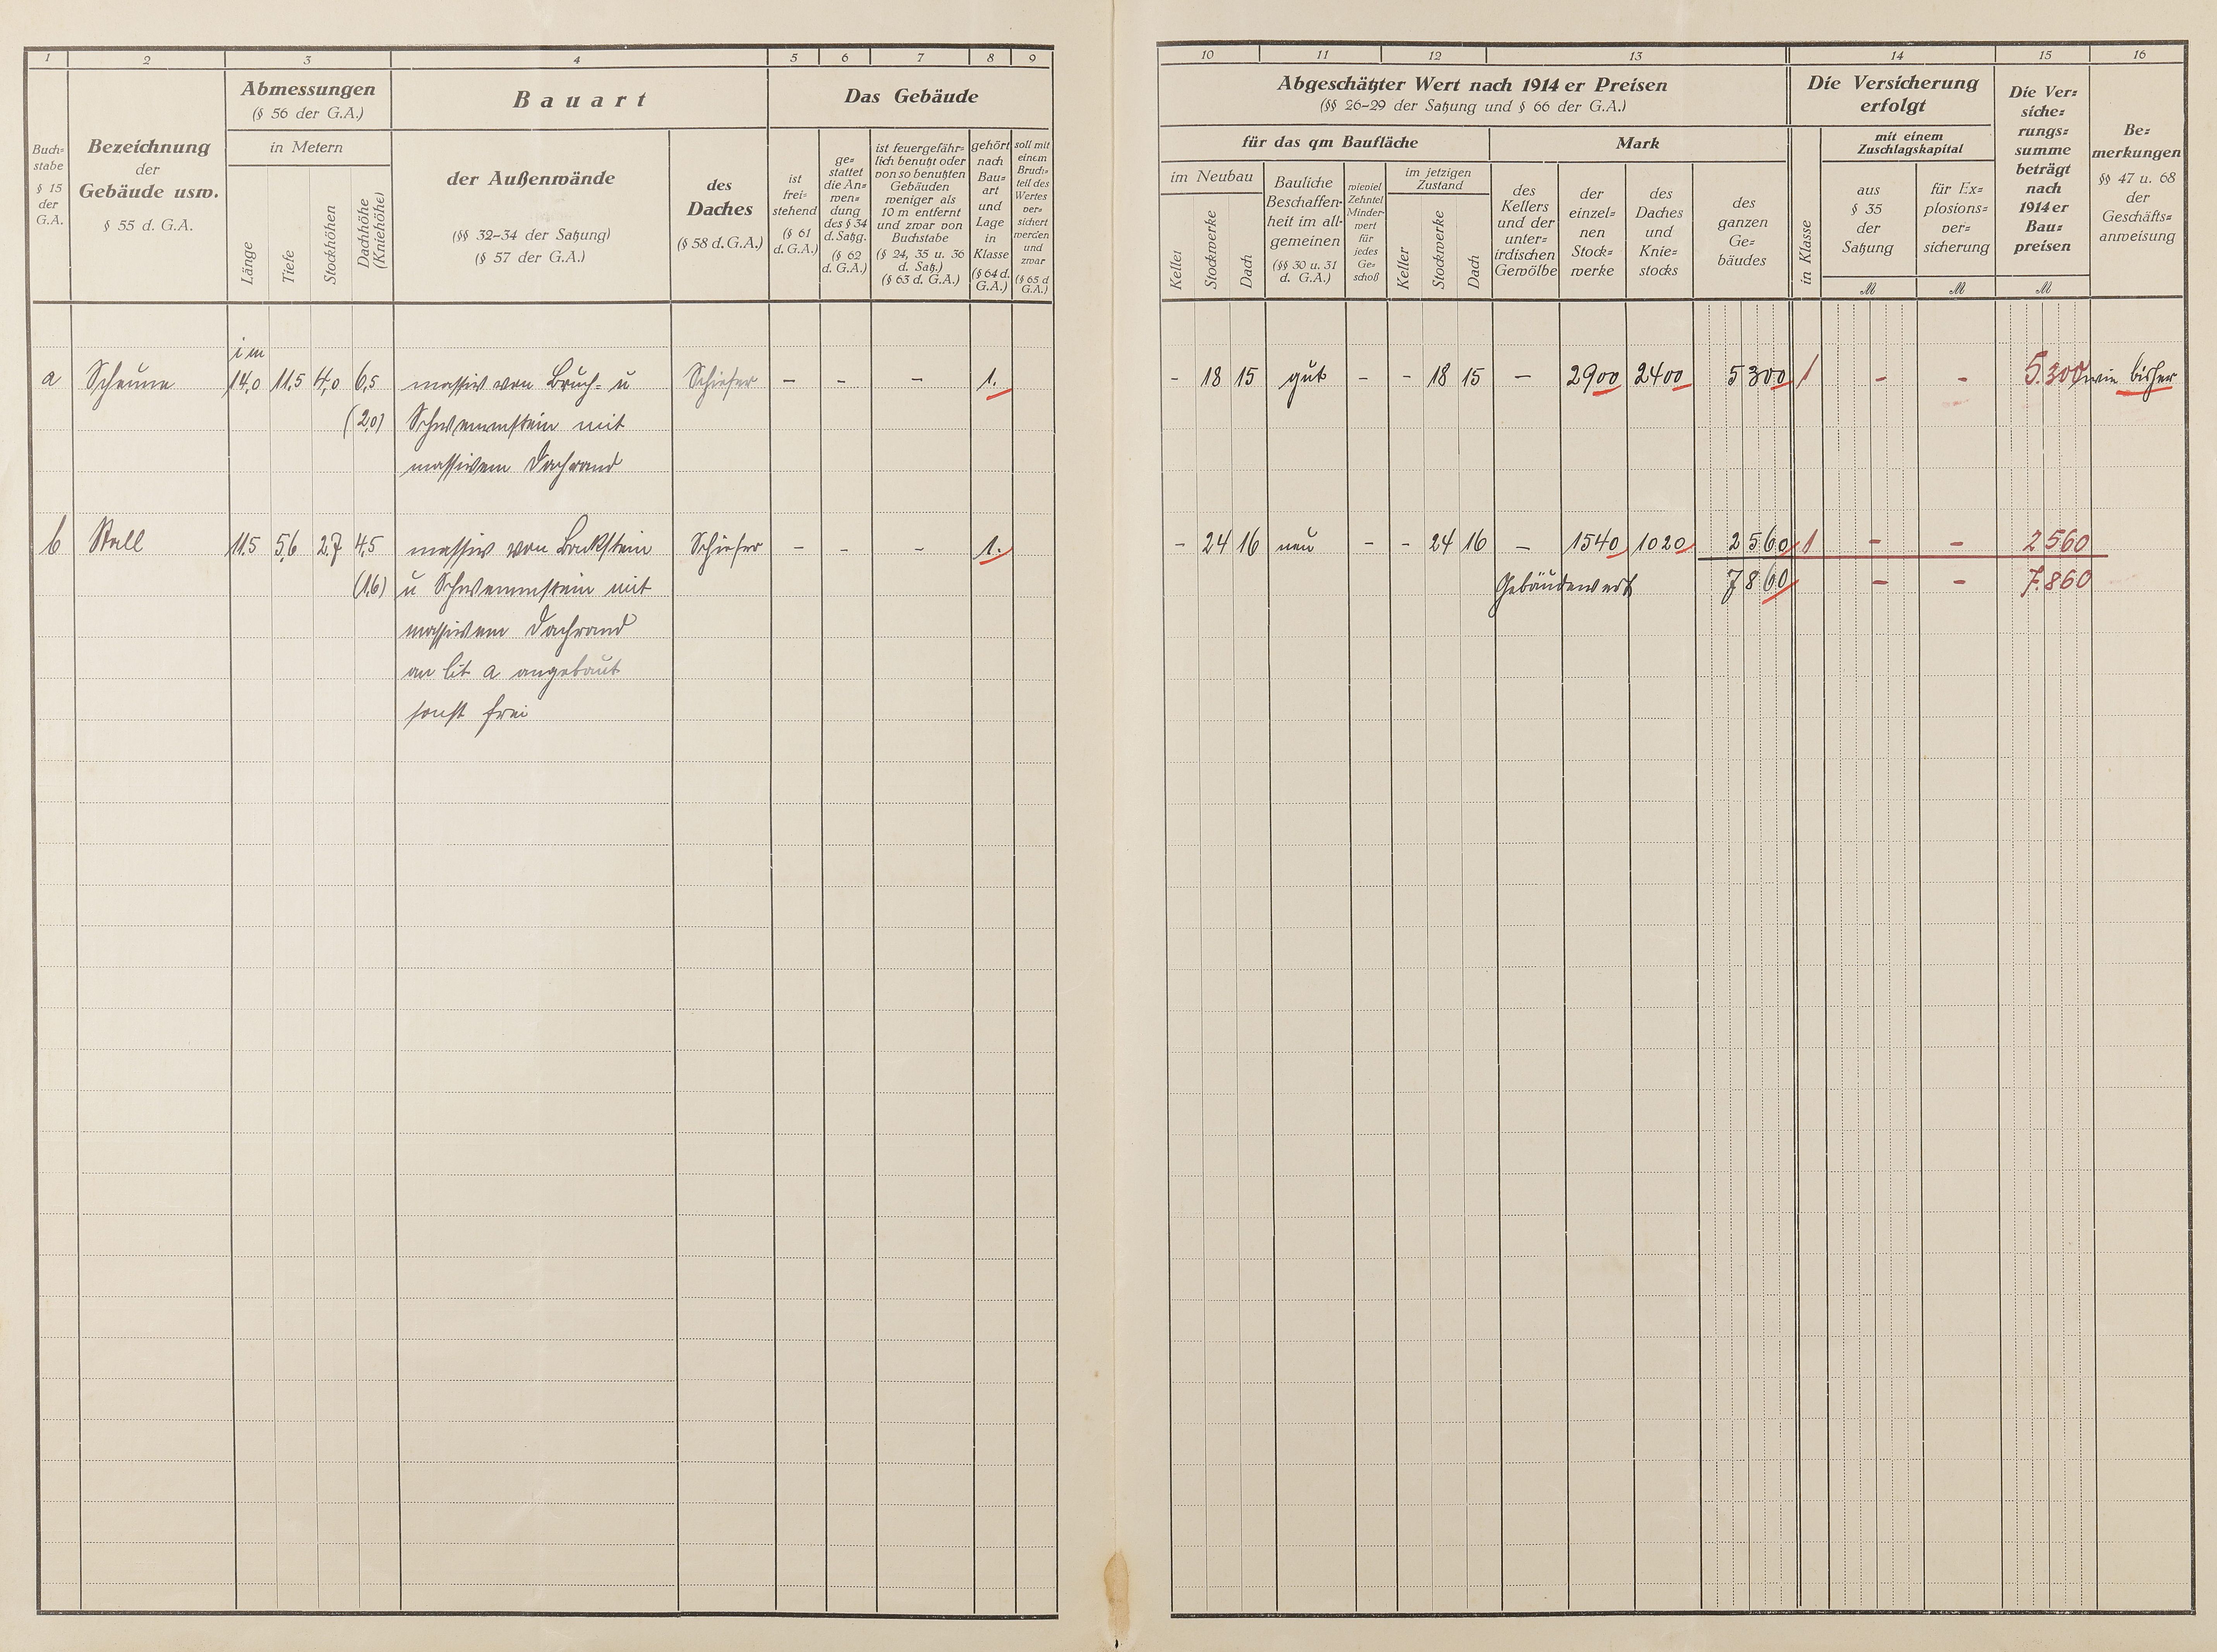 1 2 3 4 5 6 7 8 9
Buch=
stabe
§ 15
der
G.A.
Bezeichnung
der
Gebäude usw.
§ 55 d. G.A.
Abmessungen
(§ 56 der G.A.)
in Metern
Länge
Tiefe
Stockhöhen
Dachhöhe
(Kniehöhe)
Bauart
der Außenwände
(§§ 32–34 der Satzung)
(§ 57 der G.A.)
des
Daches
(§ 58 d. G.A.)
Das Gebäude
ist
frei=
stehend
(§ 61
d. G.A.)
ge=
stattet
die An=
wen=
dung
des § 34
d. Satzg.
(§ 62
d. G.A.)
ist feuergefähr=
lich benutzt oder
von so benutzten
Gebäuden
weniger als
10 m entfernt
und zwar von
Buchstabe
(§ 24, 35 u. 36
d. Satz.)
(§ 63 d. G.A.)
gehört
nach
Bau=
art
und
Lage
in
Klasse
(§ 64 d.
G.A.)
soll mit
einem
Bruch=
teil des
Wertes
ver=
sichert
werden
und
zwar
(§ 65 d
G.A.)
im
a Scheune 14,0 11,5 4,0 6,5 massiv von Bruch- u Schiefer – – – 1.
(2,0) Schwemmstein mit
massivem Dachrand
b Stall 11,5 5,6 2,7 4,5 massiv von Backstein Schiefer – – – 1.
(1,6) u Schwemmstein mit
massivem Dachrand
an lit a angebaut
sonst frei
10 11 12 13 14 15 16
Abgeschätzter Wert nach 1914 er Preisen
(§§ 26–29 der Satzung und § 66 der G.A.)
für das qm Baufläche
Mark
im Neubau
Keller
Stockwerke
Dach
Bauliche
Beschaffen-
heit im all-
gemeinen
(§§ 30 u. 31
d. G.A.)
wieviel
Zehntel
Minder-
wert
für
jedes
Ge=
schoß
im jetzigen
Zustand
Keller
Stockwerke
Dach
des
Kellers
und der
unter=
irdischen
Gewölbe
der
einzel=
nen
Stock=
werke
des
Daches
und
Knie=
stocks
des
ganzen
Ge=
bäudes
Die Versicherung
erfolgt
in Klasse
mit einem
Zuschlagskapital
aus
§ 35
der
Satzung
M
für Ex=
plosions=
ver=
sicherung
M
Die Ver=
siche=
rungs=
summe
beträgt
nach
1914 er
Bau=
preisen
M
Be=
merkungen
§§ 47 u. 68
der
Geschäfts=
anweisung
– 18 15 gut – – 18 15 – 2900 2400 5300 1 – – 5.300 wie bisher
– 24 16 neu – – 24 16 – 1540 1020 2560 1 – – 2560
Gebäudewert 7860 – – 7.860